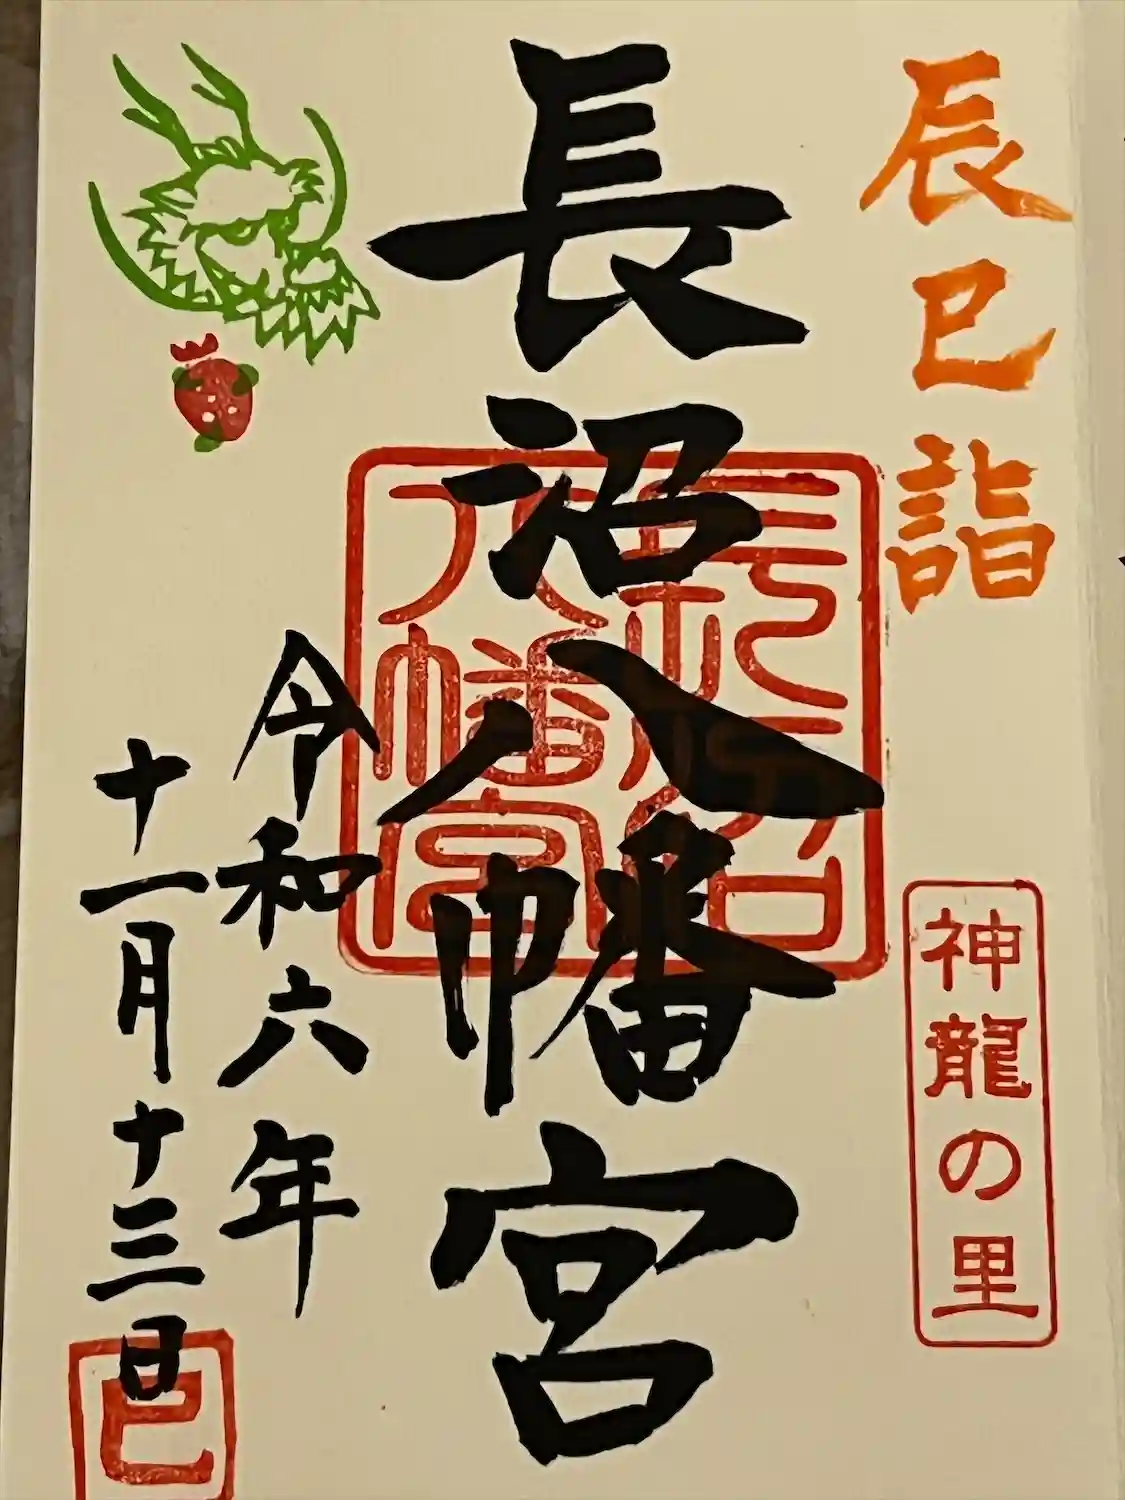 辰巳詣
神龍の里
長沼八幡宮
令和六年
十一月十三日
巳